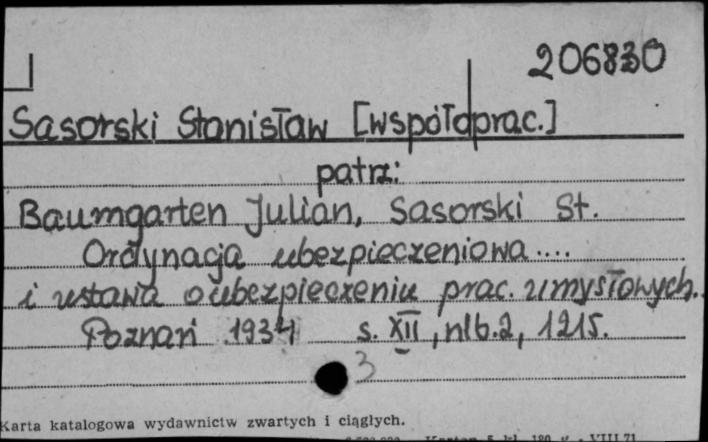 206830
Sasorski Stanisław [współoprac.]
patrz:
Baumgarten Julian, Sasorski St.
Ordynacja ubezpieczeniowa....
i ustawa o ubezpieczeniu prac. umysłowych.
Poznań 1934 s. XII, nlb.2, 1215.
3
Karta katalogowa wydawnictw zwartych i ciągłych.